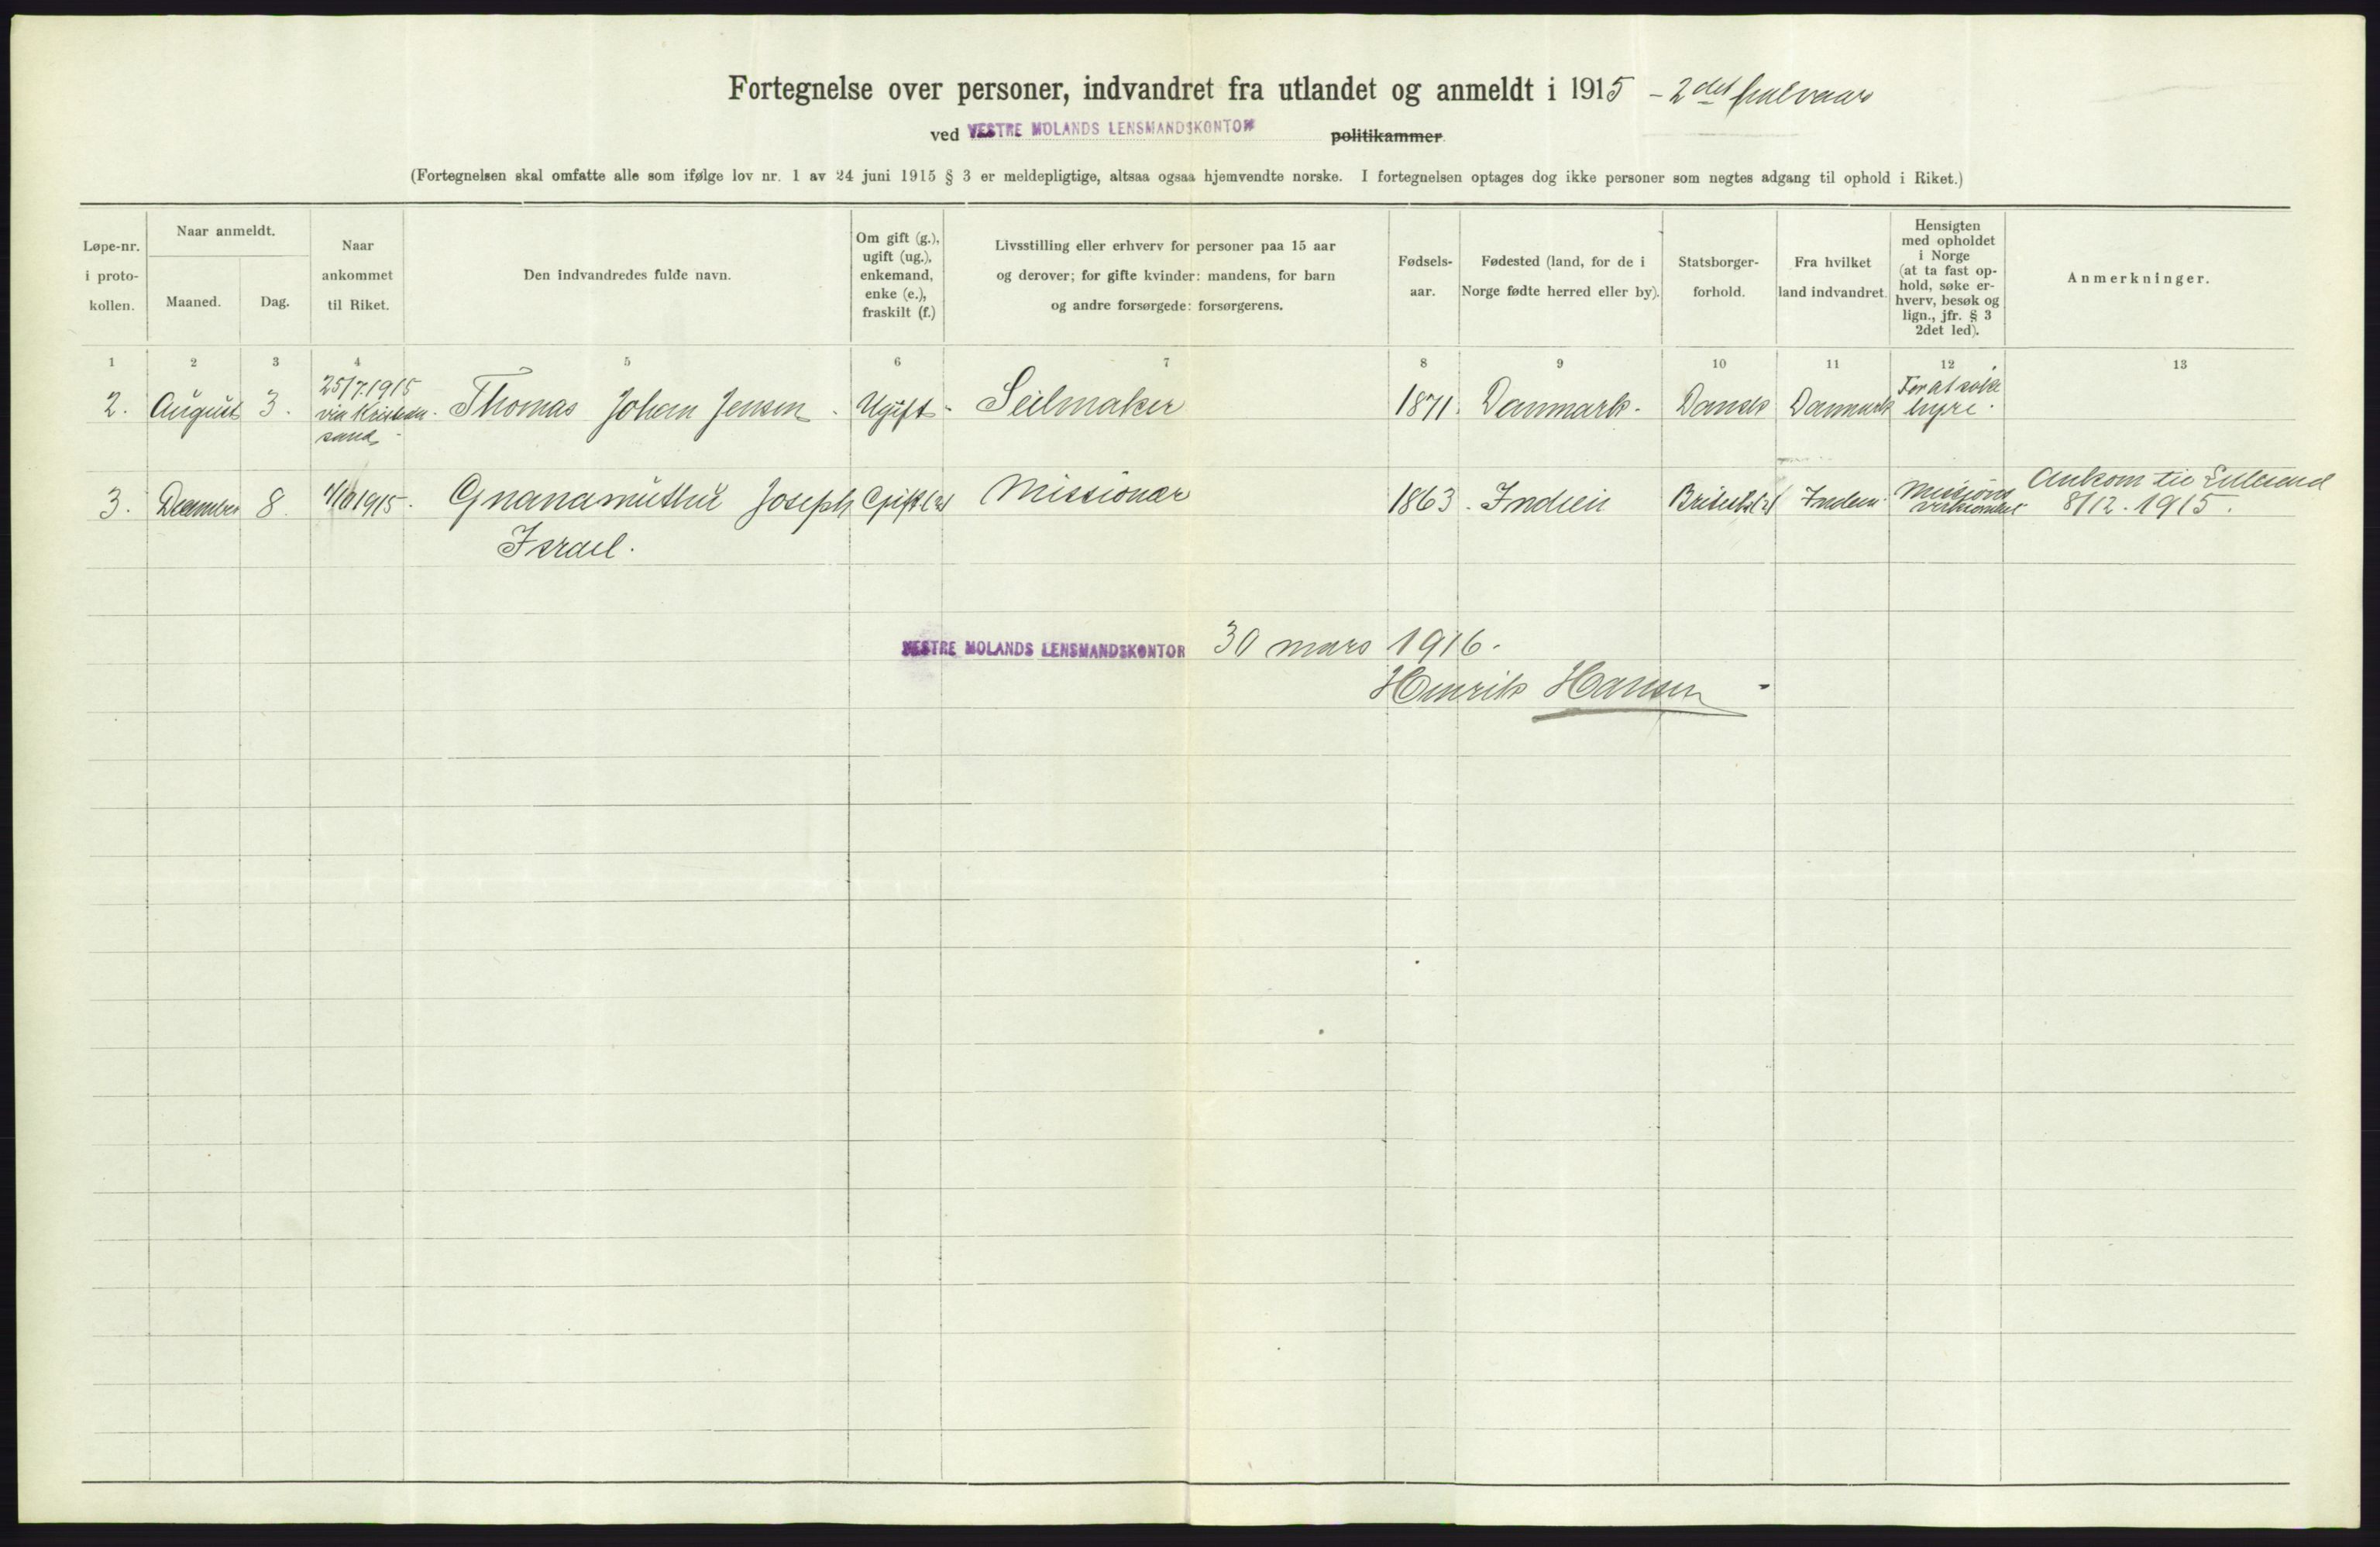 Fortegnelse over personer, indvandret fra utlandet og anmeldt i 1915 – 2det halvaar
ved VESTRE MOLANDS LENSMANDSKONTOR politikammer.
(Fortegnelsen skal omfatte alle som ifølge lov nr. 1 av 24 juni 1915 § 3 er meldepligtige, altsaa ogsaa hjemvendte norske. I fortegnelsen optages dog ikke personer som negtes adgang til ophold i Riket.)
Løpe-nr.
i proto-
kollen.
Naar anmeldt.
Maaned.
Dag.
Naar
ankommet
til Riket.
Den indvandredes fulde navn.
Om gift (g.),
ugift (ug.),
enkemand,
enke (e.),
fraskilt (f.)
Livsstilling eller erhverv for personer paa 15 aar
og derover; for gifte kvinder: mandens, for barn
og andre forsørgede: forsørgerens.
Fødsels-
aar.
Fødested (land, for de i
Norge fødte herred eller by).
Statsborger-
forhold.
Fra hvilket
land indvandret.
Hensigten
med opholdet
i Norge
(at ta fast op-
hold, søke er-
hverv, besøk og
lign., jfr. § 3
2det led).
Anmerkninger.
1 2 3 4 5 6 7 8 9 10 11 12 13
2. August 3.
25/7.1915
via Kristian-
sand.
Thomas Johan Jensen. Ugift. Seilmaker 1871. Danmark. Dansk Danmark
For at søke
hyre.
3. December 8. 1915. Gnanamuthu Joseph
Israel.
Gift Missionær 1863. Indien Britisk Indien. Missions
Ankom til Lillesand
8/12. 1915.
VESTRE MOLANDS LENSMANDSKONTOR 30 mars 1916.
Henrik Hansen